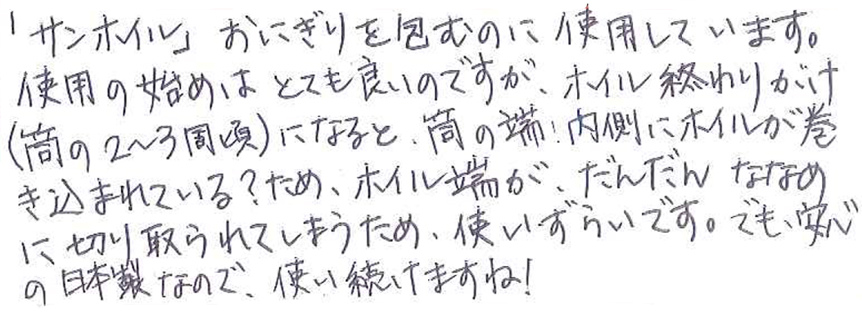 「サンホイル」おにぎりを包むのに使用しています。
使用の始めはとても良いのですが、ホイル終わりがけ
(筒の2〜3周頃)になると、筒の端!内側にホイルが巻
き込まれている?ため、ホイル端が、だんだんななめ
に切り取られてしまうため、使いずらいです。でも、安心
の日本製なので、使い続けますね!